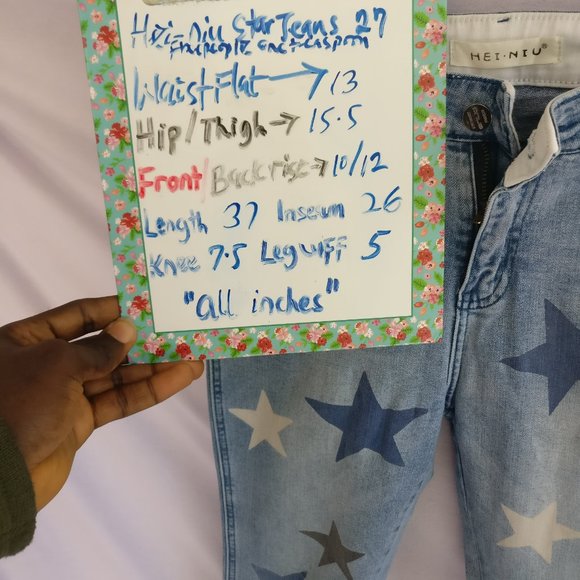 Hei-Niu Star Jeans 27
Waist Flat → 13
Hip/Thigh → 15.5
Front/Back rise → 10/12
Length 37 Inseam 26
Knee 7.5 Leg cuff 5
"all inches"
HEI·NIU®